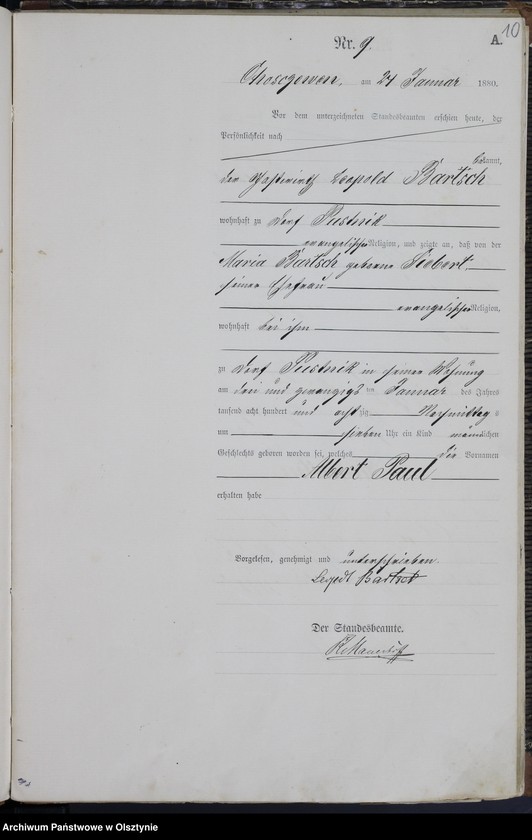 10
Nr. 9.
A.
Choscewen, am 24 Januar 1880.
Vor dem unterzeichneten Standesbeamten erschien heute, der
Persönlichkeit nach
bekannt,
der Gastwirth Leopold Bartsch
wohnhaft zu Dorf Pustnik
evangelischer Religion, und zeigte an, daß von der
Maria Bartsch geborne Siebert
seiner Ehefrau
evangelischer Religion,
wohnhaft bei ihm
zu Dorf Pustnik in seiner Wohnung
am drei und zwanzigsten Januar des Jahres
tausend acht hundert und achtzig Vormittag s
um sieben Uhr ein Kind männlichen
Geschlechts geboren worden sei, welches die Vornamen
Albert Paul
erhalten habe
Vorgelesen, genehmigt und unterschrieben.
Bartsch
Der Standesbeamte.
Archiwum Państwowe w Olsztynie